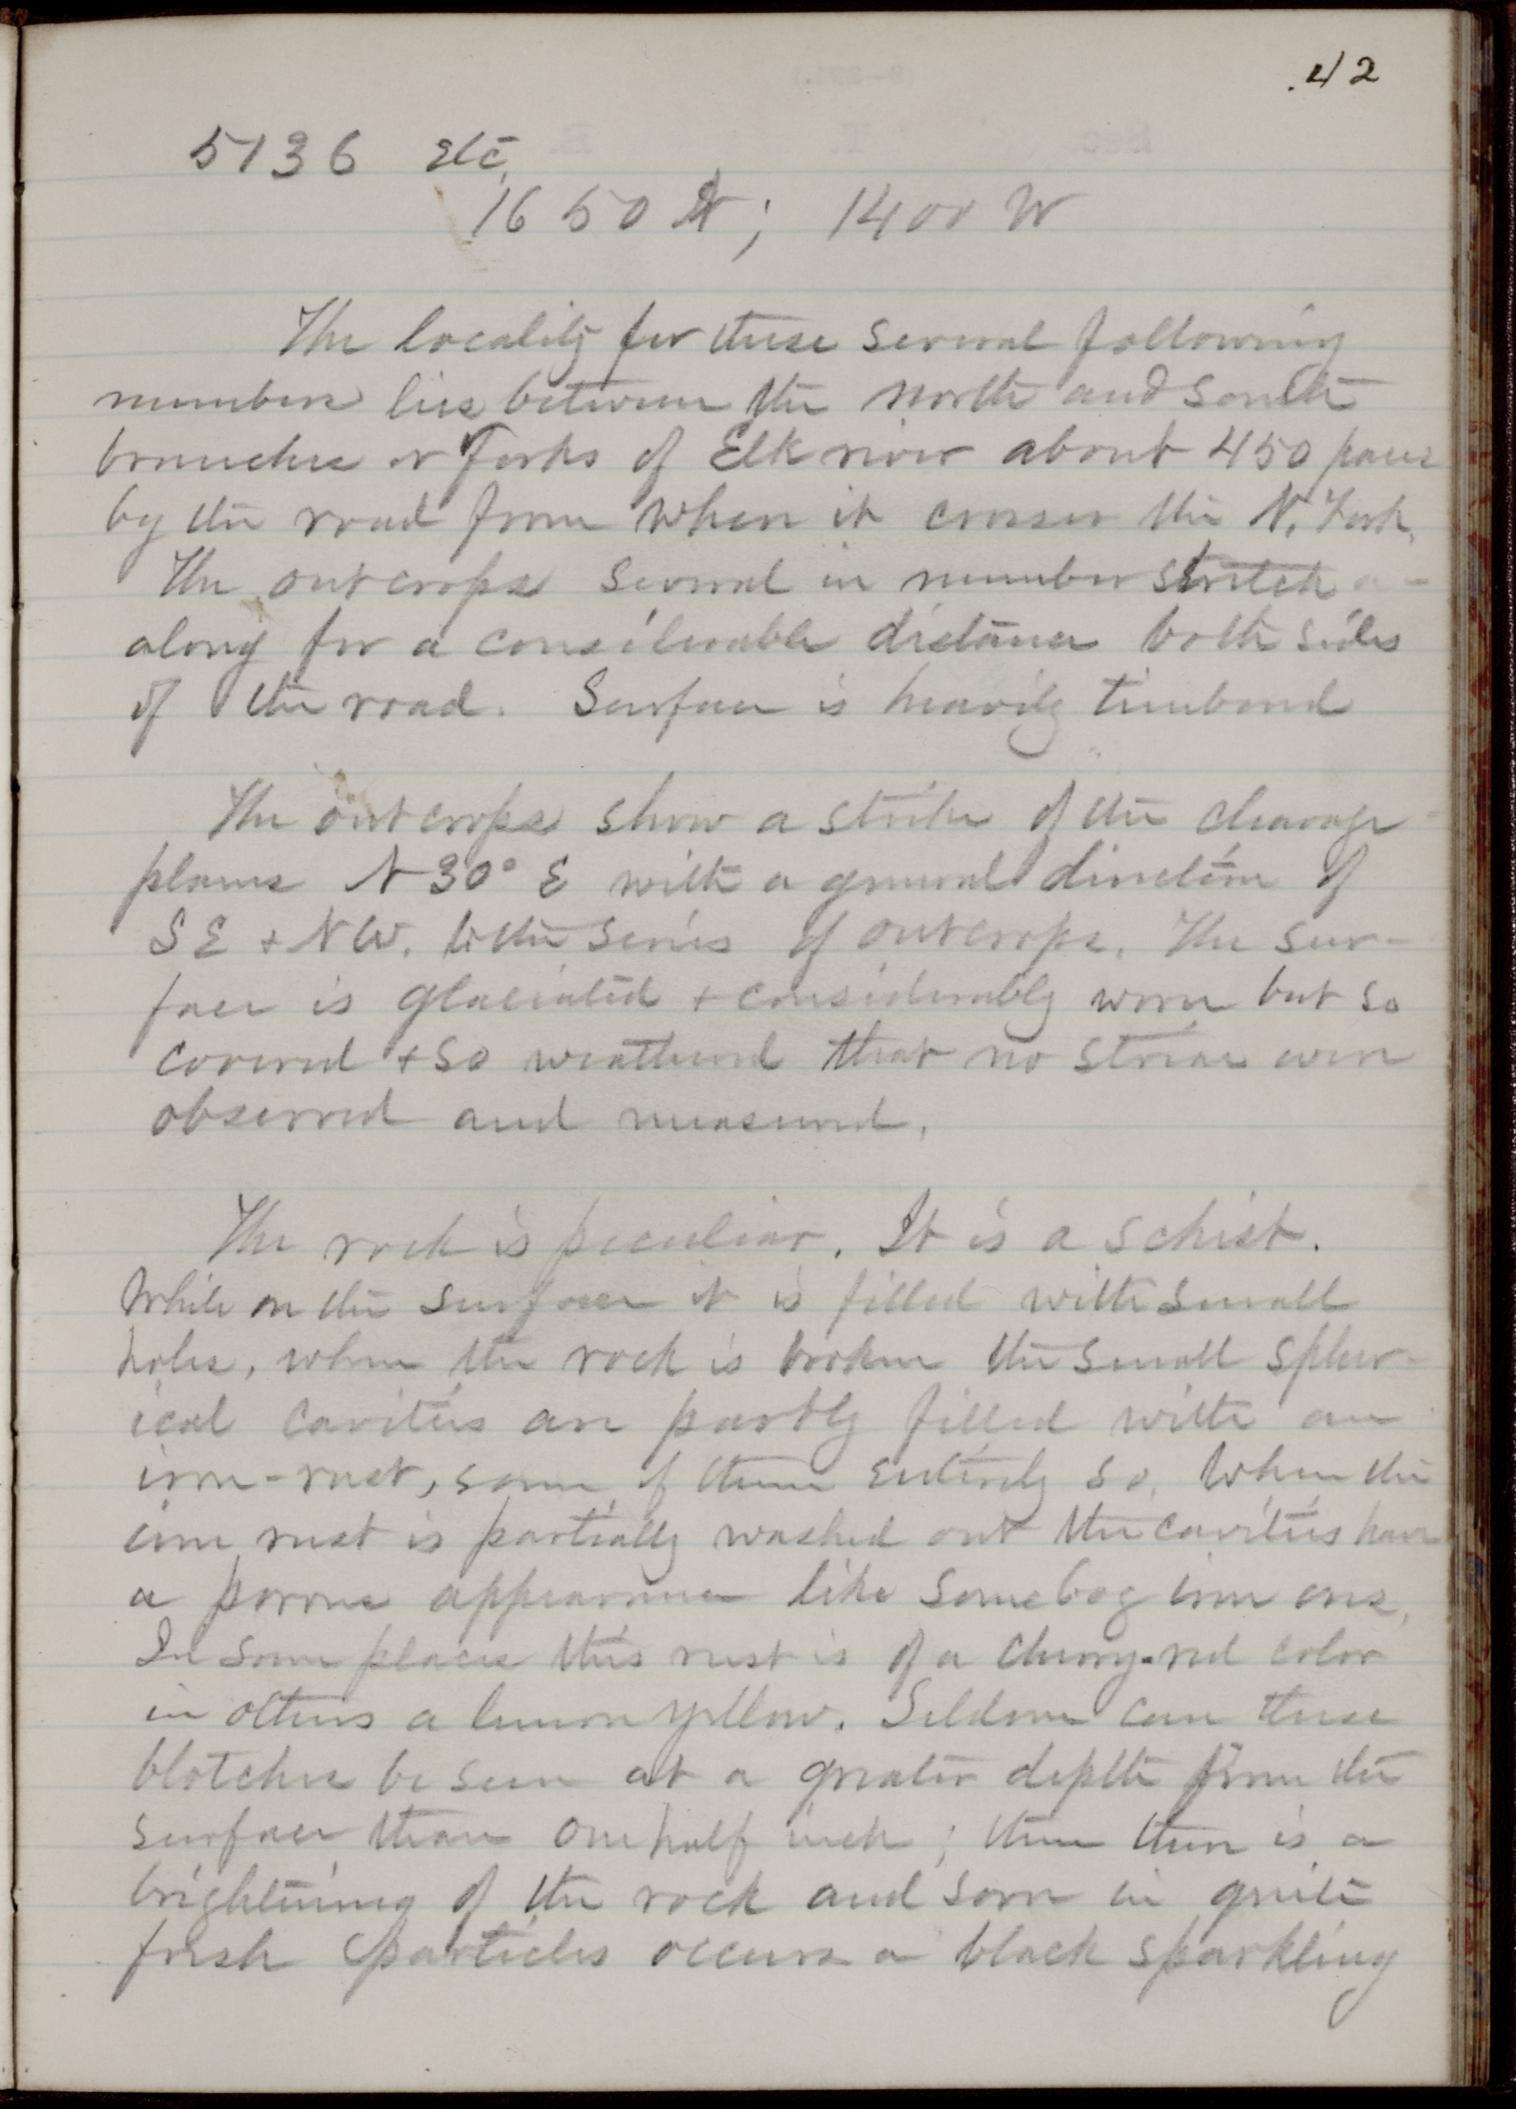 42
5136 etc.
1650 N; 1400 W
The locality for these several following
numbers lies between the north and south
branches or forks of Elk river about 450 paces
by the road from where it crosses the N. Fork.
The outcrops several in number stretch a-
along for a considerable distance both sides
of the road. Surface is heavily timbered
The outcrops show a strike of the cleavage
planes N 30° E with a general direction of
SE + NW. to the series of outcrops. The sur-
face is glaciated + considerably worn but so
covered + so weathered that no striae were
observed and measured.
The rock is peculiar. It is a schist.
While on the surface it is filled with small
holes, when the rock is broken the small spher-
ical cavities are partly filled with an
iron-rust, some of them entirely so. When the
iron rust is partially washed out the cavities have
a porous appearance like some bog iron ores.
In some places this rust is of a cherry-red color
in others a lemon yellow. Seldom can these
blotches be seen at a greater depth from the
surface than one half inch; then there is a
brightening of the rock and soon in quite
fresh particles occurs a black sparkling